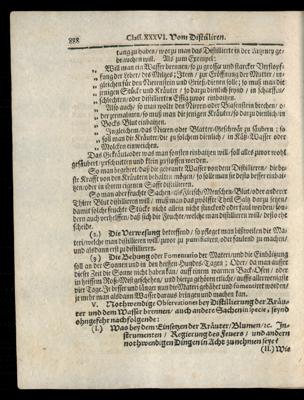 898 Class. XXXVI. Vom Distilliren.
tung zu haben / wozu man das Distillierte in der Artzney ge-
brauchen will. Als zum Exempel:
„ Will man ein Wasser brennen / so zu grosser und starcker Verstopf-
„ fung der Leber / des Miltzes; Item / zur Eröffnung der Mutter / in-
„ gleichen für den Nierenstein und Grieß dienen solle; so muß man die-
„ jenigen Stück und Kräuter / so darzu dienlich seynd / in scharffen
„ schlechten / oder distillierten Essig zuvor einbaitzen.
„ Also auch / so man wolte den Nieren oder Blasenstein brechen / o-
„ der zermalmen / so muß man die jenigen Kräuter / so darzu dienlich / in
„ Bocks Blut einbaitzen.
„ Ingleichen / das Nieren oder Blattern-Geschwär zu säubern; so
„ soll man die Kräuter die zu solchem dienlich / in Käß-Wasser oder
„ Molcken einweichen.
Das Gekräut oder was man sonsten einbaitzen will / soll alles zuvor wohl
gesäubert / zerschnitten und klein zerstossen werden.
So man begehret / daß die gebrannte Wasser von dem Distillieren / die be-
ste Krafft von den Kräutern behalten mögen / so sollen man sie dest besser einbei-
tzen / oder in ihrem eigenen Safft distillieren.
So man aber feuchte Sachen / als Fleisch / Menschen-Blut / oder anderer
Thiere Blut distillieren will / muß man das zwölffte Theil Saltz darzu setzen /
damit solche feuchte Stück nicht allein nicht stinckend oder faul werden / son-
dern auch verhelffen / daß sich die Feuchte / welche man distillieren will / desto eh-
scheide.
(2.) Die Verwesung betreffend / so pfleget man bißweilen die Ma-
teri / welche man distillieren will / zuvor zu putrificiren, oder faulend zu machen /
und alsdann erst zu distillieren.
(3.) Die Behung oder Fomentatio der Materi / und die Einbäitzung
soll an der Sonnen und in den heissen Hunds-Tagen; Oder da man ausser
dieser Zeit die Sonne nicht haben kan / auff einem warmen Back-Ofen / oder
in heissem Roß-Mist geschehen / und hierzu gehören etliche / auffs allerwenigste
vier Tage. Je besser und länger nun die Materi gebähet und fomentiret worden /
je mehr man alsdann Wasser daraus bringen und machen kan.
V. Nothwendige Observationes bey Distillierung der Kräu-
ter und dem Wasser brennen / auch andere Sachen in specie, seynd
ohngefehr nachfolgende:
(I.) Was bey dem Einsetzen der Kräuter / Blumen / ꝛc. In-
strumenten / Regierung des Feuers / und andern
nothwendigen Dingen in Acht zu nehmen seye?
(II.) Wie